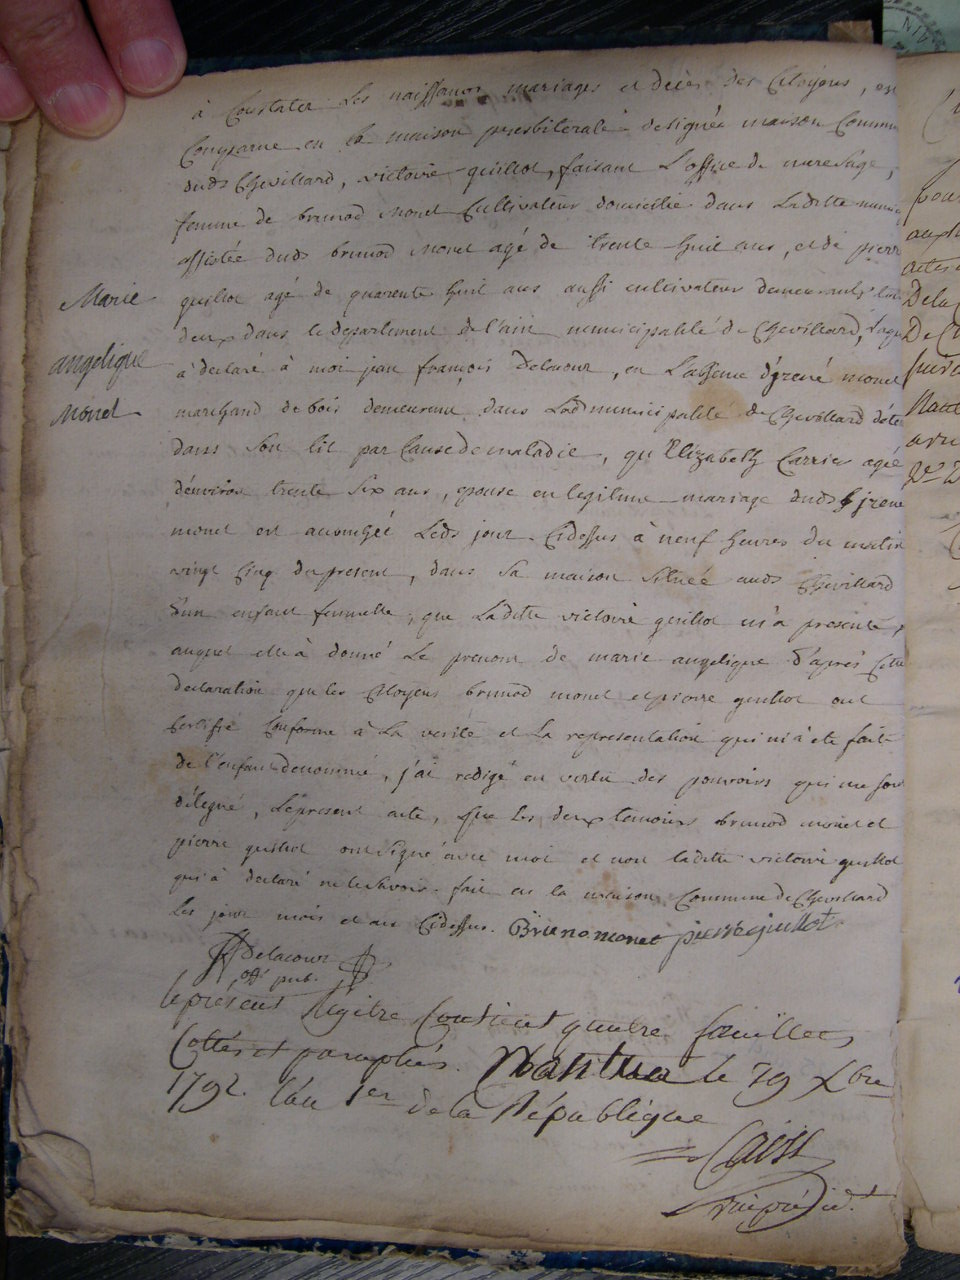 à Constater les naissances mariages et décès des Citoyens, est
Comparue en la maison presbiterale designée maison Commune
dudt Chevillard, victoire guillot, faisant L'office de mere sage,
femme de brunod monet Cultivateur domicillié dans Laditte
assistée dudt brunod monet agé de trente huit ans, et de pierre
guillot agé de quarente huit ans aussi cultivateur demeurants
deux dans le departement de l'ain municipalité de Chevillard,
à declaré à moi jean françois Delacour, en L'absence d'jrené monet
marchand de bois demeurant dans Ladt municipalité de Chevillard
dans son lit par Cause de maladie, qu'Elizabeth Carrier agée
d'environ trente six ans, epouse en legitime mariage dudt jrené
monet est acouchée Ledt jour Cidessus à neuf heures du matin
vingt Cinq du present, dans sa maison située audt Chevillard
d'un enfant femmelle, que Laditte victoire guillot m'a presenté,
auquel elle à donné Le prenom de marie angelique d'après Cette
declaration que les Citoyens brunod monet et pierre guillot ont
Certifié Conforme à La verité et La representation qui m'à eté faite
de l'enfant denommé, j'ai redigé en vertu des pouvoirs qui me sont
délegué, Le present acte, que les deux temoins brunod monet et
pierre guillot ont signé avec moi et non laditte victoire guillot
qui à declaré ne le savoir. fait en la maison Commune de Chevillard
les jour mois et an Cidessus. Bruno monet pierre guillot
Marie
angelique
Monet
Delacour
off. pub.
le present Regitre Contient quatre feuillets
Cottés et paraphés. Nantua le 29 Xbre
1792. l'an 1er de la République